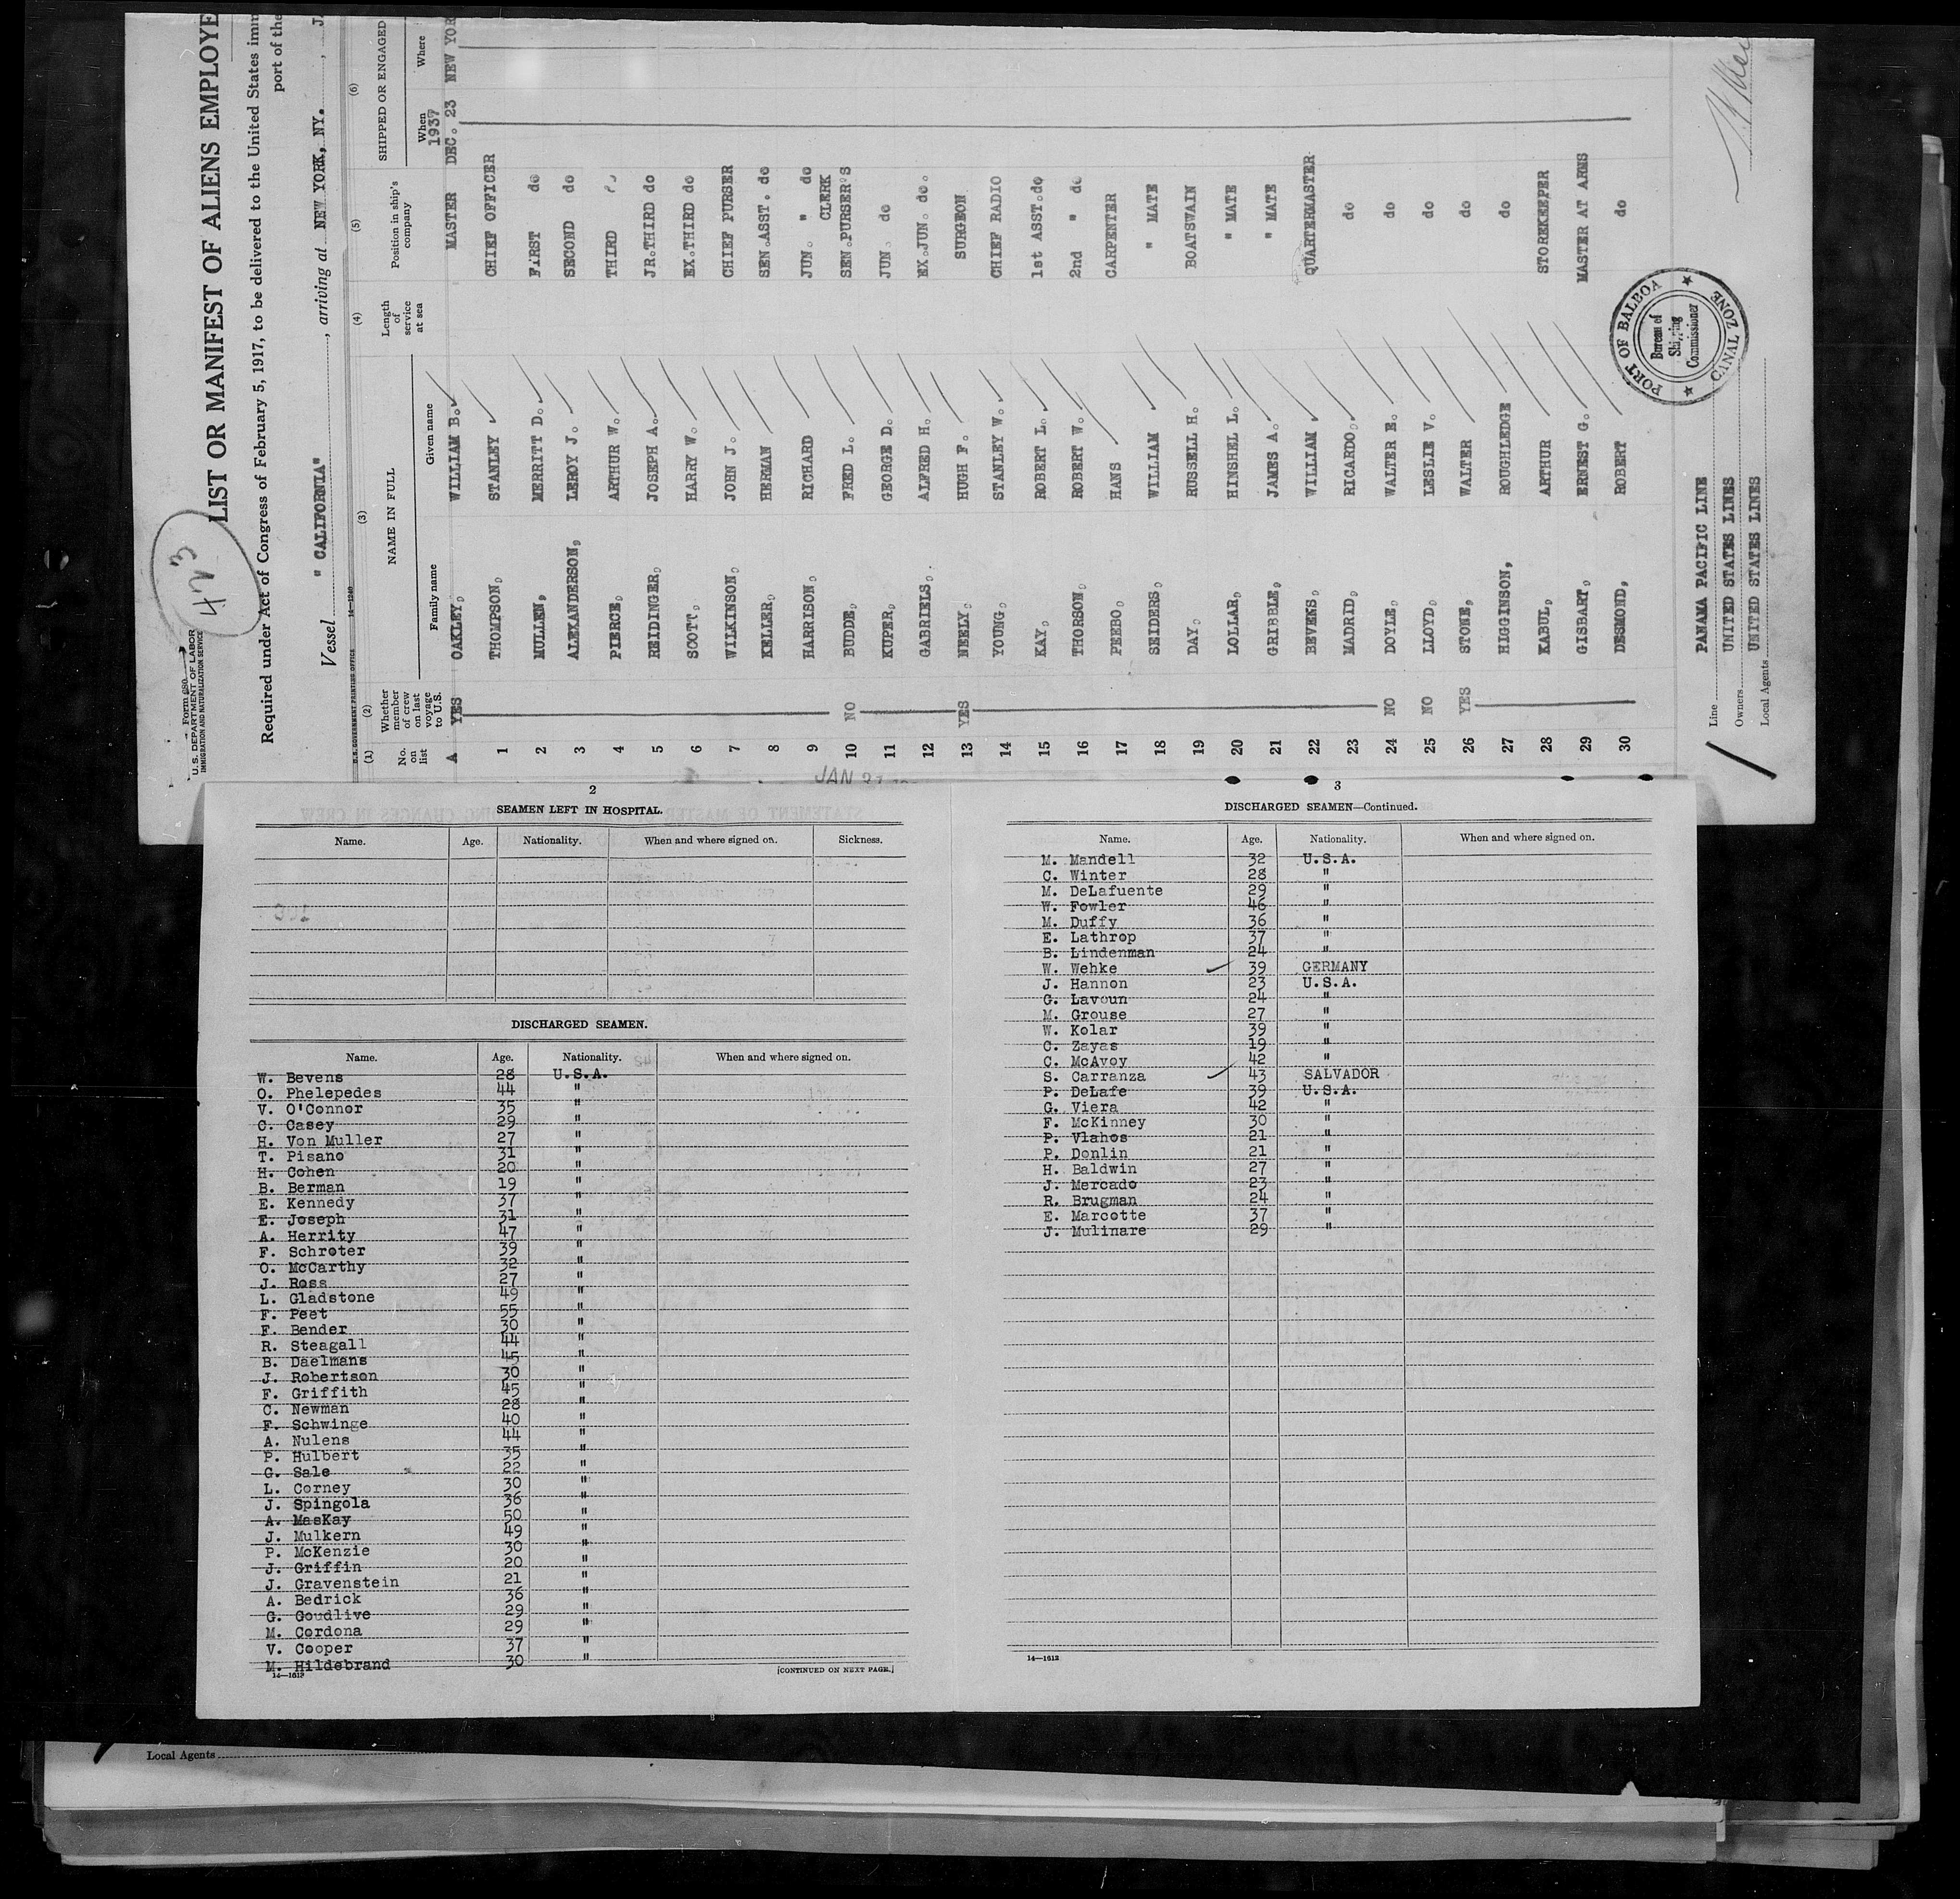 423
Form 680
U. S. DEPARTMENT OF LABOR
IMMIGRATION AND NATURALIZATION SERVICE
LIST OR MANIFEST OF ALIENS EMPLOYE
Required under Act of Congress of February 5, 1917, to be delivered to the United States imm
port of the
Vessel "CALIFORNIA", arriving at NEW YORK, NY.
U. S. GOVERNMENT PRINTING OFFICE 14—1240
(1) (2) (3) (4) (5) (6)
No. on list Whether member of crew on last voyage to U.S. NAME IN FULL Length of service at sea Position in ship's company SHIPPED OR ENGAGED
Family name Given name When Where
1937
A YES OAKLEY, WILLIAM B. MASTER DEC. 23 NEW YOR
1 THOMPSON, STANLEY CHIEF OFFICER
2 MULLEN, MERRITT D. FIRST do
3 ALEXANDERSON, LEROY J. SECOND do
4 PIERCE, ARTHUR W. THIRD
5 REIDINGER, JOSEPH A. JR.THIRD do
6 SCOTT, HARRY W. EX.THIRD do
7 WILKINSON, JOHN J. CHIEF PURSER
8 KELLER, HERMAN SEN.ASST. do
9 HARRISON, RICHARD JUN. " do
CLERK
10 NO BUDDE, FRED L. SEN.PURSER'S
11 KUPER, GEORGE D. JUN. do
12 GABRIELS, ALFRED H. EX.JUN. do.
13 YES NEELY, HUGH F. SURGEON
14 YOUNG, STANLEY W. CHIEF RADIO
15 KAY, ROBERT L. 1st ASST.do
16 THORSON, ROBERT W. 2nd " do
17 PEEBO, HANS CARPENTER
18 SEIDERS, WILLIAM " MATE
19 DAY, RUSSELL H. BOATSWAIN
20 LOLLAR, HINSHEL L. " MATE
21 GRIBBLE, JAMES A. " MATE
22 BEVENS, WILLIAM QUARTERMASTER
23 MADRID, RICARDO, do
24 NO DOYLE, WALTER E. do
25 NO LLOYD, LESLIE V. do
26 YES STONE, WALTER do
27 HIGGINSON, ROUGHLEDGE do
28 KABUL, ARTHUR STOREKEEPER
29 GISBART, ERNEST G. MASTER AT ARMS
30 DESMOND, ROBERT do
PORT OF BALBOA
Bureau of
Shipping
Commissioner
CANAL ZONE
Line PANAMA PACIFIC LINE
Owners UNITED STATES LINES
Local Agents UNITED STATES LINES
JAN 27
2
SEAMEN LEFT IN HOSPITAL.
Name. Age. Nationality. When and where signed on. Sickness.
DISCHARGED SEAMEN.
Name. Age. Nationality. When and where signed on.
W. Bevens 28 U.S.A.
O. Phelepedes 44 "
V. O'Connor 35 "
C. Casey 29 "
H. Von Muller 27 "
T. Pisano 31 "
H. Cohen 20 "
B. Berman 19 "
E. Kennedy 37 "
E. Joseph 31 "
A. Herrity 47 "
F. Schroter 39 "
O. McCarthy 32 "
J. Ross 27 "
L. Gladstone 49 "
F. Peet 55 "
F. Bender 30 "
R. Steagall 44 "
B. Daelmans 45 "
J. Robertson 30 "
F. Griffith 45 "
C. Newman 28 "
F. Schwinge 40 "
A. Nulens 44 "
P. Hulbert 35 "
G. Sale 22 "
L. Corney 30 "
J. Spingola 36 "
A. MasKay 50 "
J. Mulkern 49 "
P. McKenzie 30 "
J. Griffin 20 "
J. Gravenstein 21 "
A. Bedrick 36 "
G. Goudlive 29 "
M. Cordona 29 "
V. Cooper 37 "
M. Hildebrand 30 "
14—1612
[CONTINUED ON NEXT PAGE.]
3
DISCHARGED SEAMEN—Continued.
Name. Age. Nationality. When and where signed on.
M. Mandell 32 U.S.A.
C. Winter 28 "
M. DeLafuente 29 "
W. Fowler 46 "
M. Duffy 36 "
E. Lathrop 37 "
B. Lindenman 24 "
W. Wehke 39 GERMANY
J. Hannon 23 U.S.A.
G. Lavoun 24 "
M. Grouse 27 "
W. Kolar 39 "
C. Zayas 19 "
C. McAvoy 42 "
S. Carranza 43 SALVADOR
P. DeLafe 39 U.S.A.
G. Viera 42 "
F. McKinney 30 "
P. Vlahos 21 "
P. Donlin 21 "
H. Baldwin 27 "
J. Mercado 23 "
R. Brugman 24 "
E. Marcotte 37 "
J. Mulinare 29 "
14—1612
Local Agents